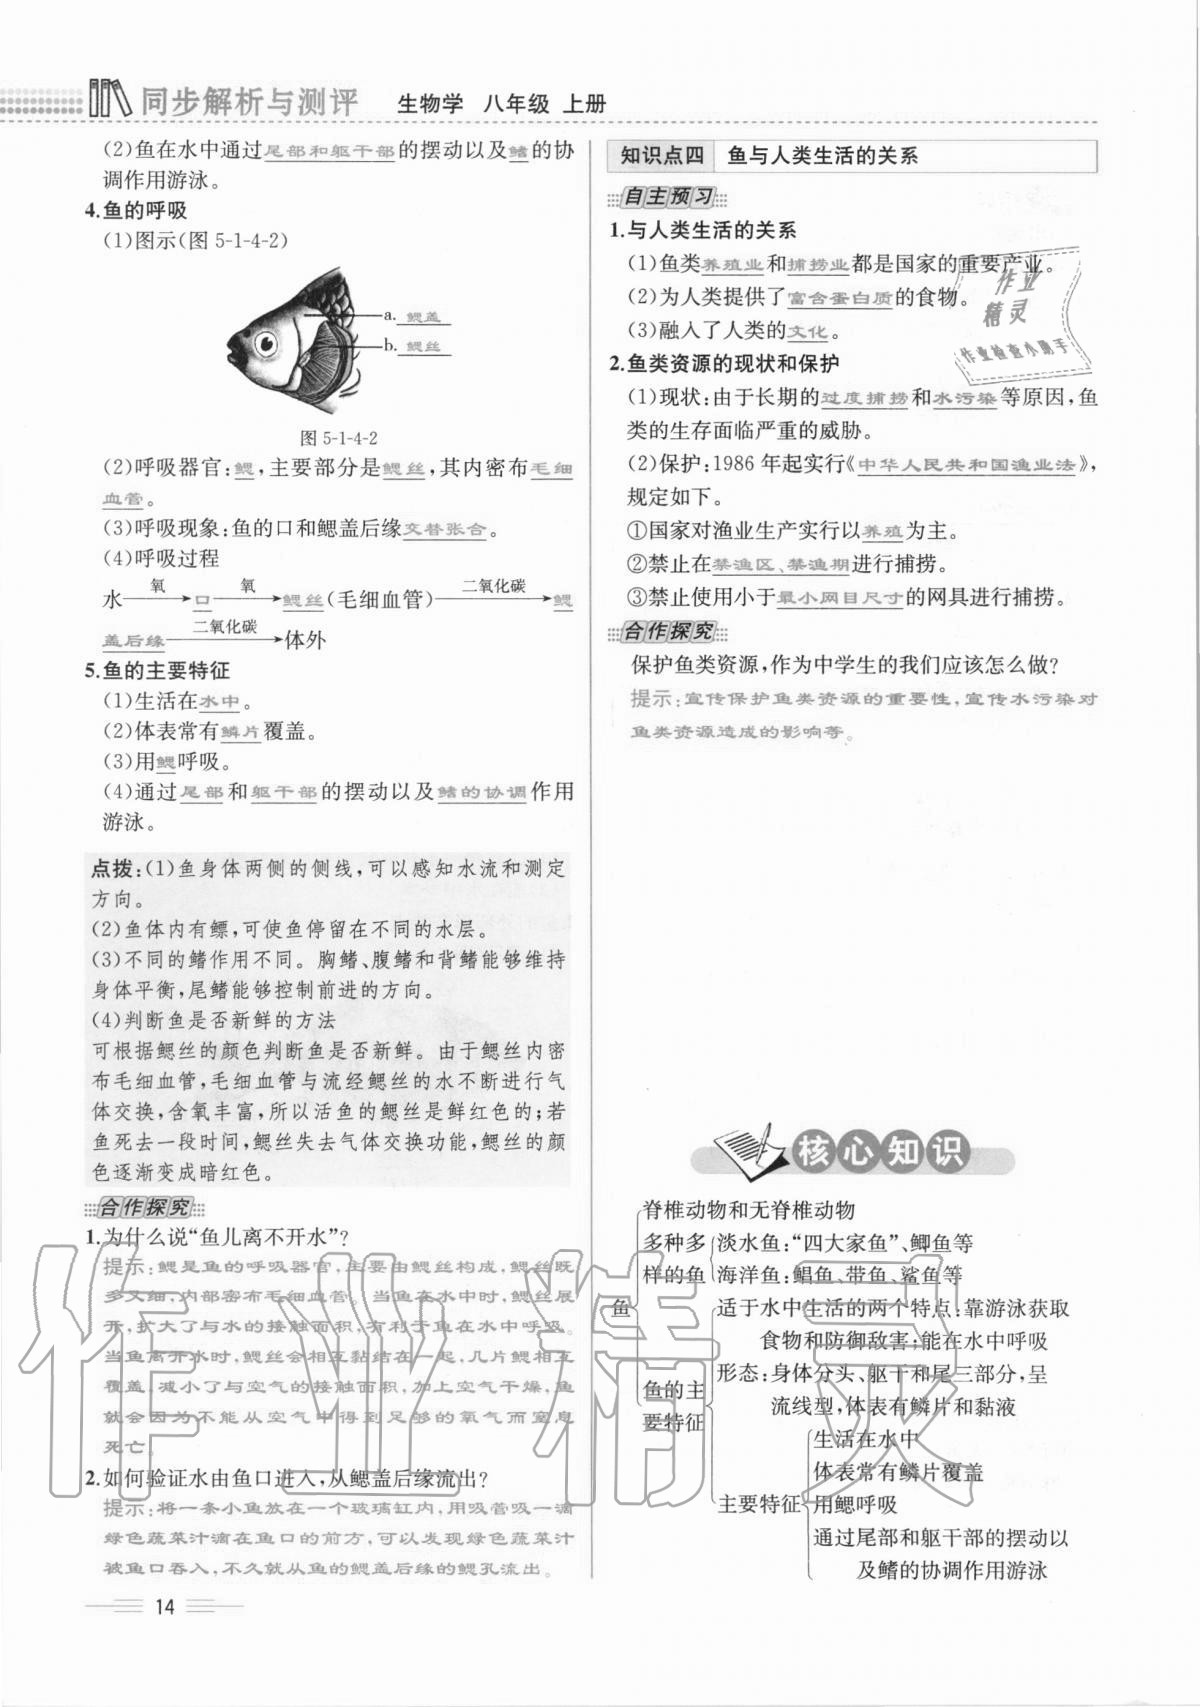 同步解析与测评 生物学 八年级 上册
(2)鱼在水中通过尾部和躯干部的摆动以及鳍的协
调作用游泳。
4.鱼的呼吸
(1)图示(图5-1-4-2)
a.鳃盖
b.鳃丝
图5-1-4-2
(2)呼吸器官:鳃,主要部分是鳃丝,其内密布毛细
血管。
(3)呼吸现象:鱼的口和鳃盖后缘交替张合。
(4)呼吸过程
氧 氧 二氧化碳
水→口→鳃丝(毛细血管)→鳃
二氧化碳
盖后缘→体外
5.鱼的主要特征
(1)生活在水中。
(2)体表常有鳞片覆盖。
(3)用鳃呼吸。
(4)通过尾部和躯干部的摆动以及鳍的协调作用
游泳。
点拨:(1)鱼身体两侧的侧线,可以感知水流和测定
方向。
(2)鱼体内有鳔,可使鱼停留在不同的水层。
(3)不同的鳍作用不同。胸鳍、腹鳍和背鳍能够维持
身体平衡,尾鳍能够控制前进的方向。
(4)判断鱼是否新鲜的方法
可根据鳃丝的颜色判断鱼是否新鲜。由于鳃丝内密
布毛细血管,毛细血管与流经鳃丝的水不断进行气
体交换,含氧丰富,所以活鱼的鳃丝是鲜红色的;若
鱼死去一段时间,鳃丝失去气体交换功能,鳃丝的颜
色逐渐变成暗红色。
合作探究
1.为什么说“鱼儿离不开水”?
提示:鳃是鱼的呼吸器官,主要由鳃丝构成,鳃丝既
多又细,内部密布毛细血管。当鱼在水中时,鳃丝展
开,扩大了与水的接触面积,有利于鱼在水中呼吸。
当鱼离开水时,鳃丝会相互黏结在一起,几片鳃相互
覆盖,减小了与空气的接触面积,加上空气干燥,鱼
就会因为不能从空气中得到足够的氧气而窒息
死亡。
2.如何验证水由鱼口进入,从鳃盖后缘流出?
提示:将一条小鱼放在一个玻璃缸内,用吸管吸一滴
绿色蔬菜汁滴在鱼口的前方,可以发现绿色蔬菜汁
被鱼口吞入,不久就从鱼的鳃盖后缘的鳃孔流出。
14
知识点四 鱼与人类生活的关系
自主预习
1.与人类生活的关系
(1)鱼类养殖业和捕捞业都是国家的重要产业。
(2)为人类提供了富含蛋白质的食物。
(3)融入了人类的文化。
2.鱼类资源的现状和保护
(1)现状:由于长期的过度捕捞和水污染等原因,鱼
类的生存面临严重的威胁。
(2)保护:1986年起实行《中华人民共和国渔业法》,
规定如下。
①国家对渔业生产实行以养殖为主。
②禁止在禁渔区、禁渔期进行捕捞。
③禁止使用小于最小网目尺寸的网具进行捕捞。
合作探究
保护鱼类资源,作为中学生的我们应该怎么做?
提示:宣传保护鱼类资源的重要性,宣传水污染对
鱼类资源造成的影响等。
作业
精灵
作业检查小助手
核心知识
鱼
脊椎动物和无脊椎动物
多种多
样的鱼
淡水鱼:“四大家鱼”、鲫鱼等
海洋鱼:鲳鱼、带鱼、鲨鱼等
鱼的主
要特征
适于水中生活的两个特点:靠游泳获取
食物和防御敌害;能在水中呼吸
形态:身体分头、躯干和尾三部分,呈
流线型,体表有鳞片和黏液
主要特征
生活在水中
体表常有鳞片覆盖
用鳃呼吸
通过尾部和躯干部的摆动以
及鳍的协调作用游泳
作业精灵